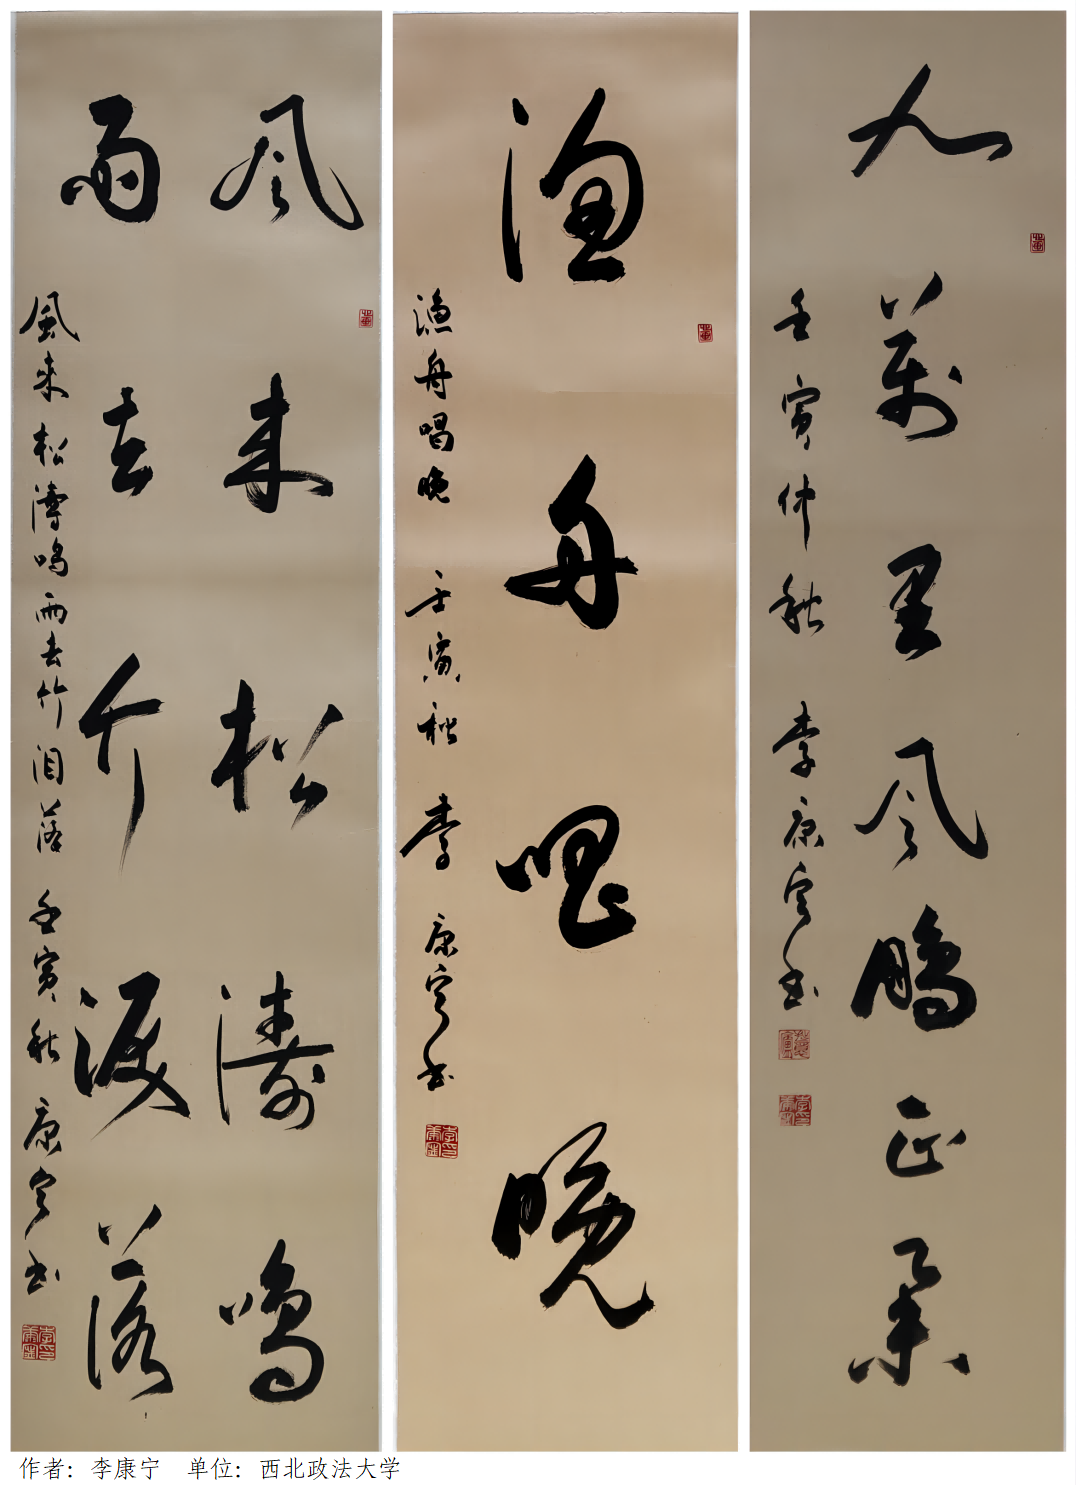 九萬里风鹏正举
壬寅仲秋 李康宁书
渔舟唱晚
渔舟唱晚 壬寅秋 李康宁书
风来松涛鸣
雨去竹泪落
風来松涛鸣雨去竹泪落 壬寅秋 康宁书
作者：李康宁 单位：西北政法大学